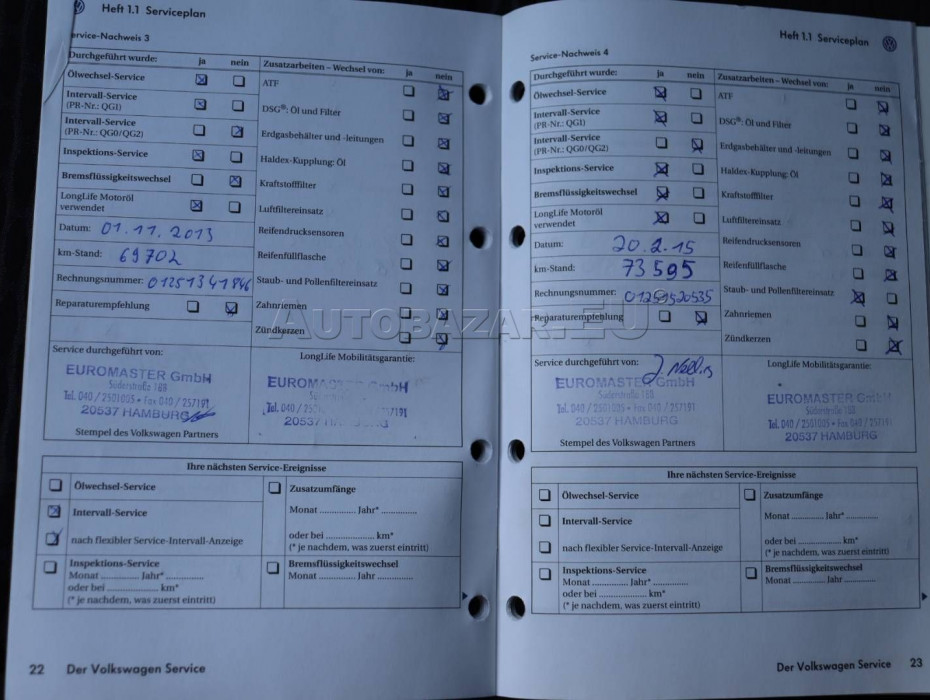 Heft 1.1 Serviceplan
Service-Nachweis 3
Durchgeführt wurde: ja nein
Ölwechsel-Service
Intervall-Service
(PR-Nr.: QG1)
Intervall-Service
(PR-Nr.: QG0/QG2)
Inspektions-Service
Bremsflüssigkeitswechsel
LongLife Motoröl
verwendet
Datum: 01.11.2013
km-Stand: 69702
Rechnungsnummer: 01251341846
Reparaturempfehlung
Zusatzarbeiten – Wechsel von: ja nein
ATF
DSG®: Öl und Filter
Erdgasbehälter und -leitungen
Haldex-Kupplung: Öl
Kraftstofffilter
Luftfiltereinsatz
Reifendrucksensoren
Reifenfüllflasche
Staub- und Pollenfiltereinsatz
Zahnriemen
Zündkerzen
Service durchgeführt von:
EUROMASTER GmbH
Süderstraße 168
Tel. 040 / 2501025 • Fax 040 / 257191
20537 HAMBURG
Stempel des Volkswagen Partners
LongLife Mobilitätsgarantie:
EUROMASTER GmbH
Tel. 040 / 257191
20537 HAMBURG
Ihre nächsten Service-Ereignisse
Ölwechsel-Service
Intervall-Service
nach flexibler Service-Intervall-Anzeige
Inspektions-Service
Monat ............. Jahr* .............
oder bei ................. km*
(* je nachdem, was zuerst eintritt)
Zusatzumfänge
Monat ............. Jahr* .............
oder bei ................. km*
(* je nachdem, was zuerst eintritt)
Bremsflüssigkeitswechsel
Monat ............. Jahr .............
22 Der Volkswagen Service
Heft 1.1 Serviceplan
Service-Nachweis 4
Durchgeführt wurde: ja nein
Ölwechsel-Service
Intervall-Service
(PR-Nr.: QG1)
Intervall-Service
(PR-Nr.: QG0/QG2)
Inspektions-Service
Bremsflüssigkeitswechsel
LongLife Motoröl
verwendet
Datum: 20.2.15
km-Stand: 73595
Rechnungsnummer: 01251520535
Reparaturempfehlung
Zusatzarbeiten – Wechsel von: ja nein
ATF
DSG®: Öl und Filter
Erdgasbehälter und -leitungen
Haldex-Kupplung: Öl
Kraftstofffilter
Luftfiltereinsatz
Reifendrucksensoren
Reifenfüllflasche
Staub- und Pollenfiltereinsatz
Zahnriemen
Zündkerzen
Service durchgeführt von:
EUROMASTER GmbH
Süderstraße 168
Tel. 040 / 2501025 • Fax 040 / 257191
20537 HAMBURG
Stempel des Volkswagen Partners
LongLife Mobilitätsgarantie:
EUROMASTER GmbH
Süderstraße 168
Tel. 040 / 2501025 • Fax 040 / 257191
20537 HAMBURG
Ihre nächsten Service-Ereignisse
Ölwechsel-Service
Intervall-Service
nach flexibler Service-Intervall-Anzeige
Inspektions-Service
Monat ............. Jahr* .............
oder bei ................. km*
(* je nachdem, was zuerst eintritt)
Zusatzumfänge
Monat ............. Jahr* .............
oder bei ................. km*
(* je nachdem, was zuerst eintritt)
Bremsflüssigkeitswechsel
Monat ............. Jahr .............
Der Volkswagen Service 23
AUTOBAZAR.EU